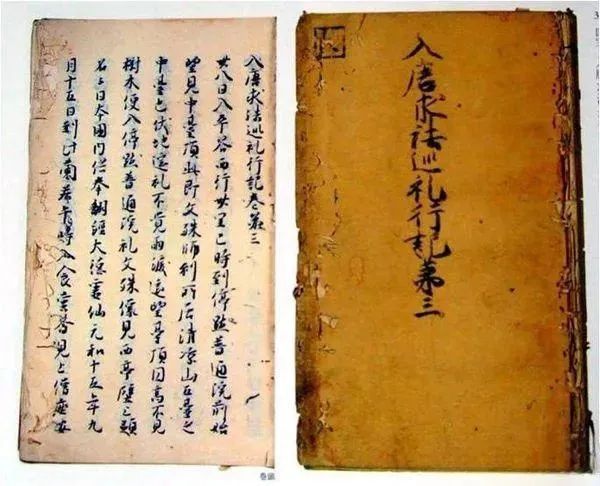 入唐求法巡礼行記第三
入唐求法巡礼行記卷第三
廿八日入平谷西行卅里巳時到停點普通院前始
望見中臺頂此即文殊師利所居清凉山五臺之
中臺也伏地遥礼不覚雨淚遥望臺頂圓高不見
樹木便入停點普通院礼文殊像見西亭壁之題
名云日本國内供奉翻經大德霊仙元和十五年九
月十五日到此蘭若斉時入食堂斉見上僧座安
巻頭